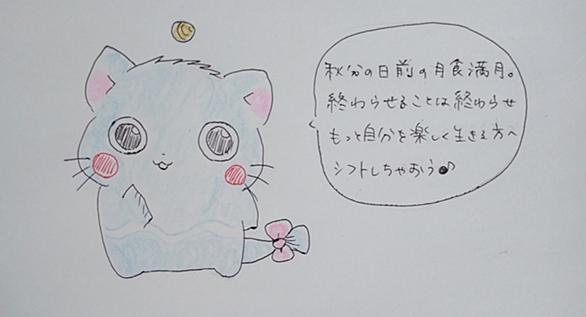 秋分の日前の月食満月。
終わらせることは終わらせ
もっと自分を楽しく生きる方へ
シフトしちゃおう♪